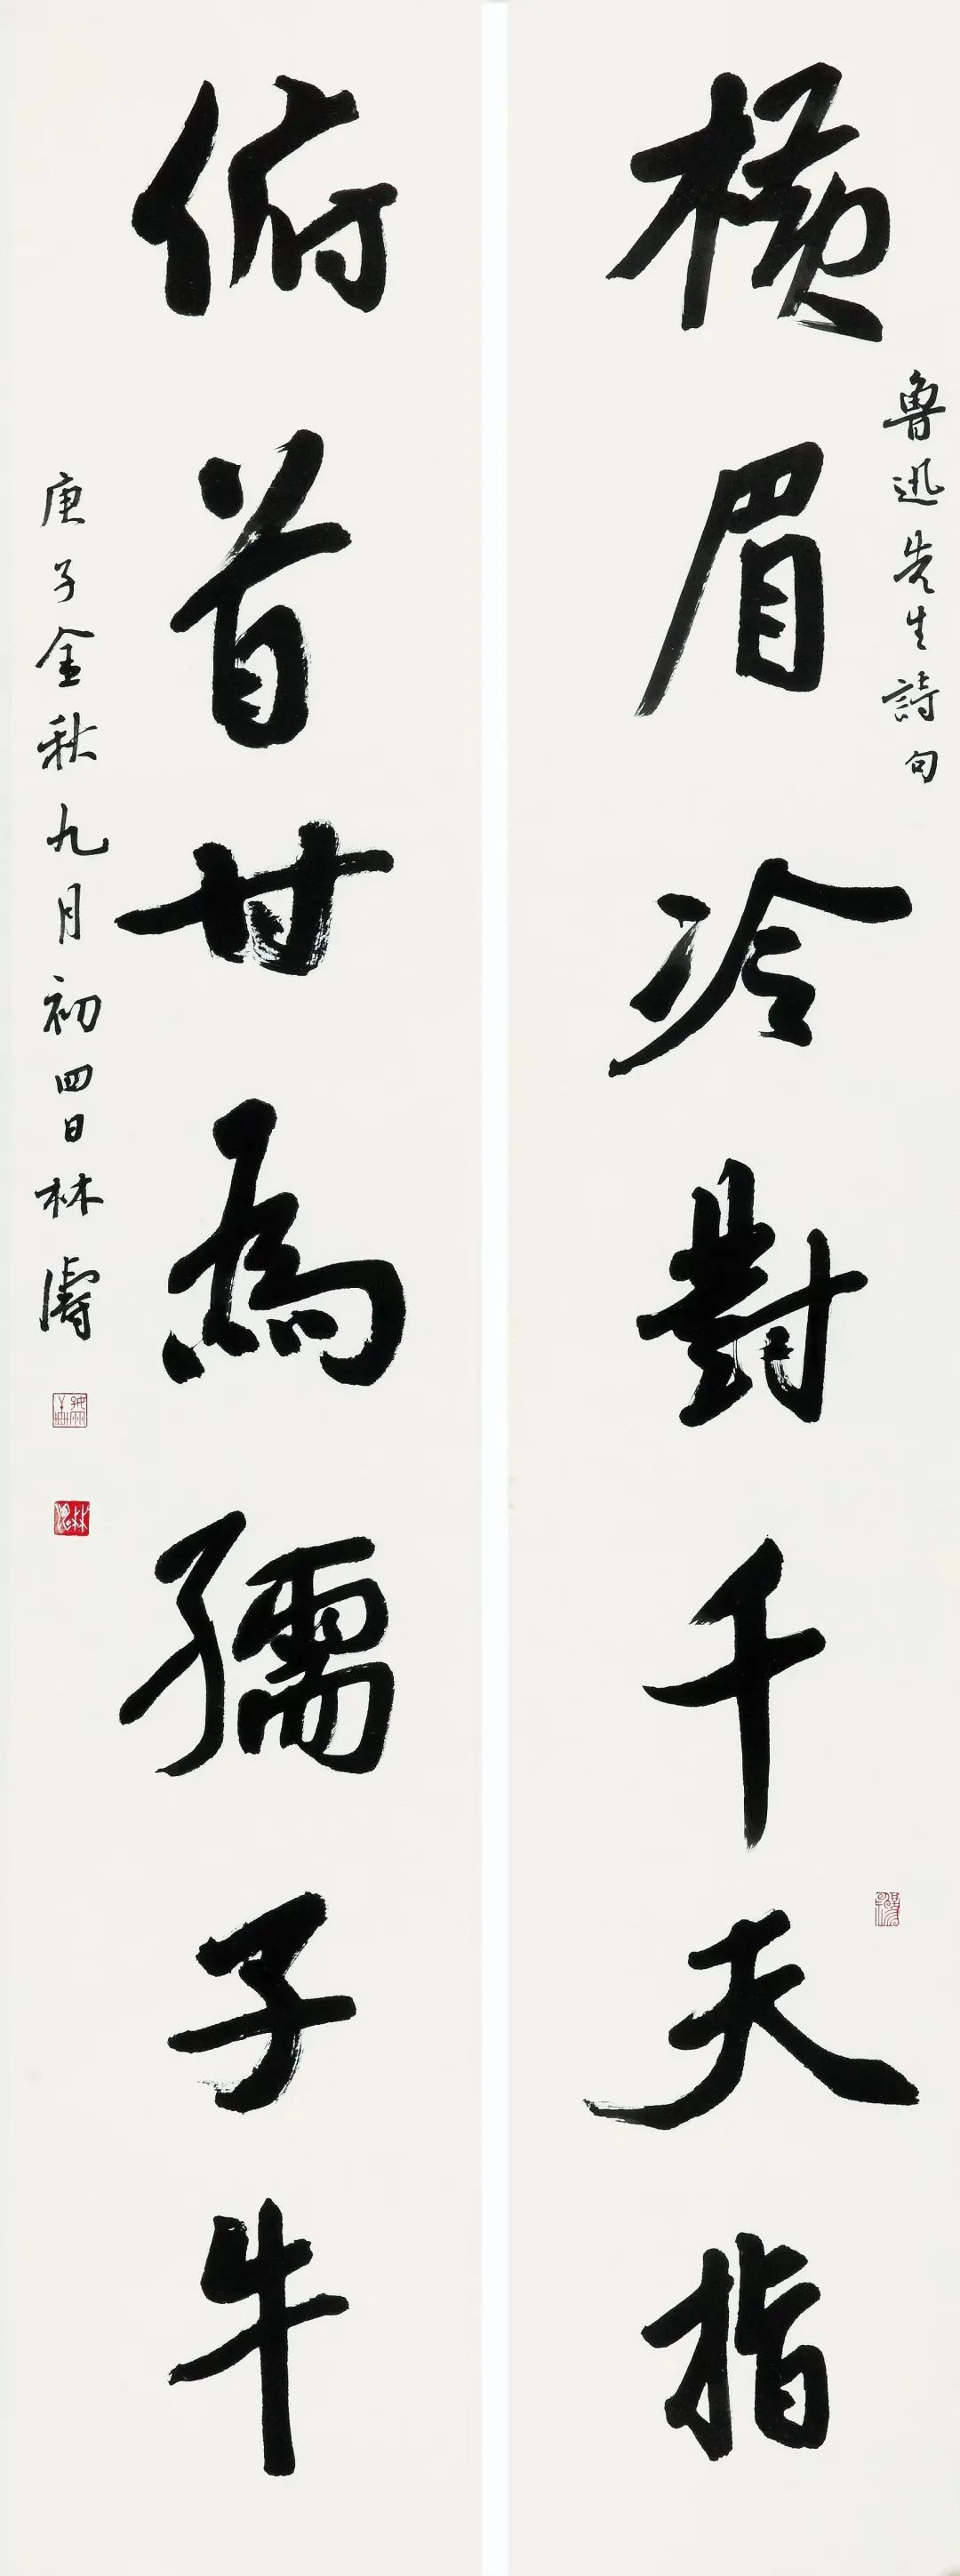 橫眉冷對千夫指
魯迅先生詩句
俯首甘為孺子牛
庚子金秋九月初四日林濤